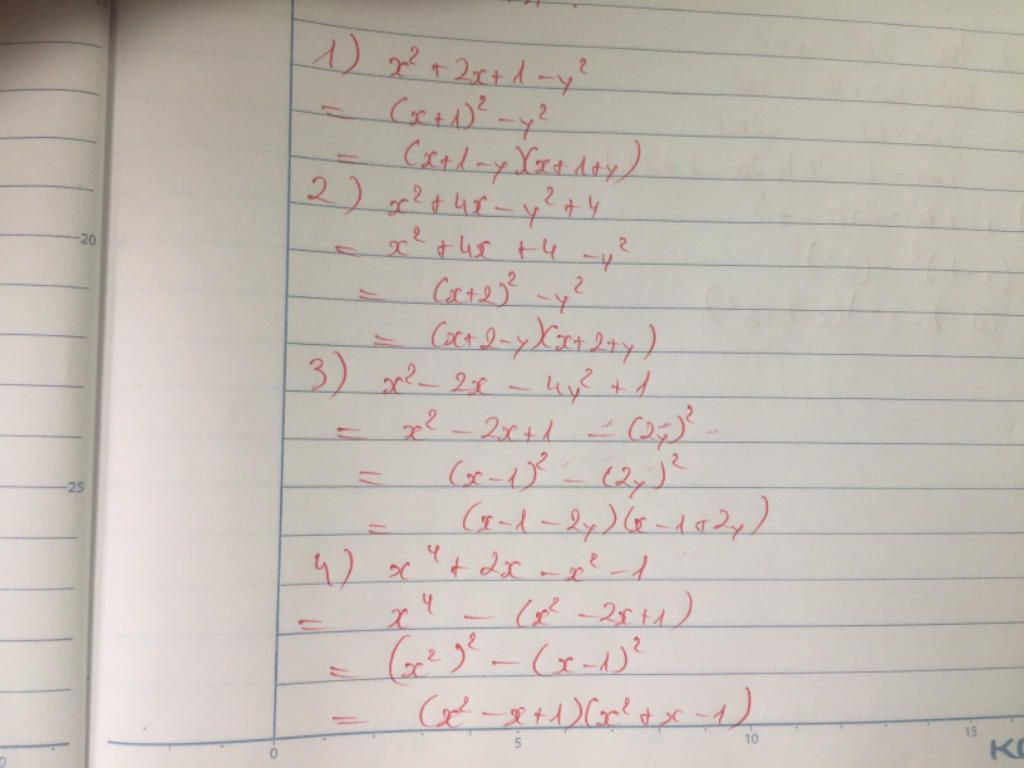 1) x² + 2x + 1 - y²
= (x+1)² - y²
= (x+1-y)(x+1+y)
2) x² + 4x - y² + 4
= x² + 4x + 4 - y²
= (x+2)² - y²
= (x+2-y)(x+2+y)
3) x² - 2x - 4y² + 1
= x² - 2x + 1 - (2y)²
= (x-1)² - (2y)²
= (x-1-2y)(x-1+2y)
4) x⁴ + 2x - x² - 1
= x⁴ - (x² - 2x + 1)
= (x²)² - (x-1)²
= (x² - x + 1)(x² + x - 1)
20
25
0 5 10 15